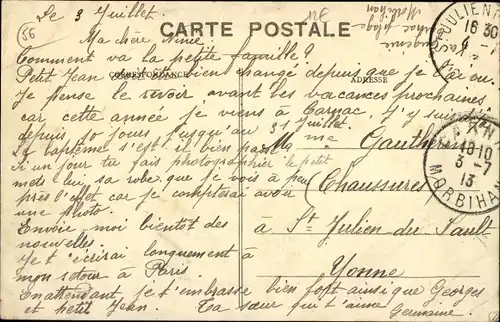 56
Le 3 Juillet.
CARTE POSTALE
Ma chère Ninie.
Comment va la petite famille?
Petit Jean bien changé depuis que je
CORRESPONDANCE
ADRESSE
Je pense le revoir avant les vacances prochaines,
car cette année je viens à Carnac, j'y suis
depuis 10 jours jusqu'au 31 Juillet.
Le baptême s'est il bien passé
Si un jour tu fais photographier le petit
mets lui sa robe que je vois à peu
près l'effet car je compterai avoir
une photo.
Envoie-moi bientôt des
nouvelles.
Je t'écrirai longuement à
mon retour à Paris.
En attendant je t'embrasse bien fort ainsi que Georges
et petit Jean. Ta sœur qui t'aime
Germaine.
Mme Gautherin
(Chaussures)
à St Julien-du-Sault
Yonne
JULIEN
16 30
18 10
3-7
13
MORBIHAN